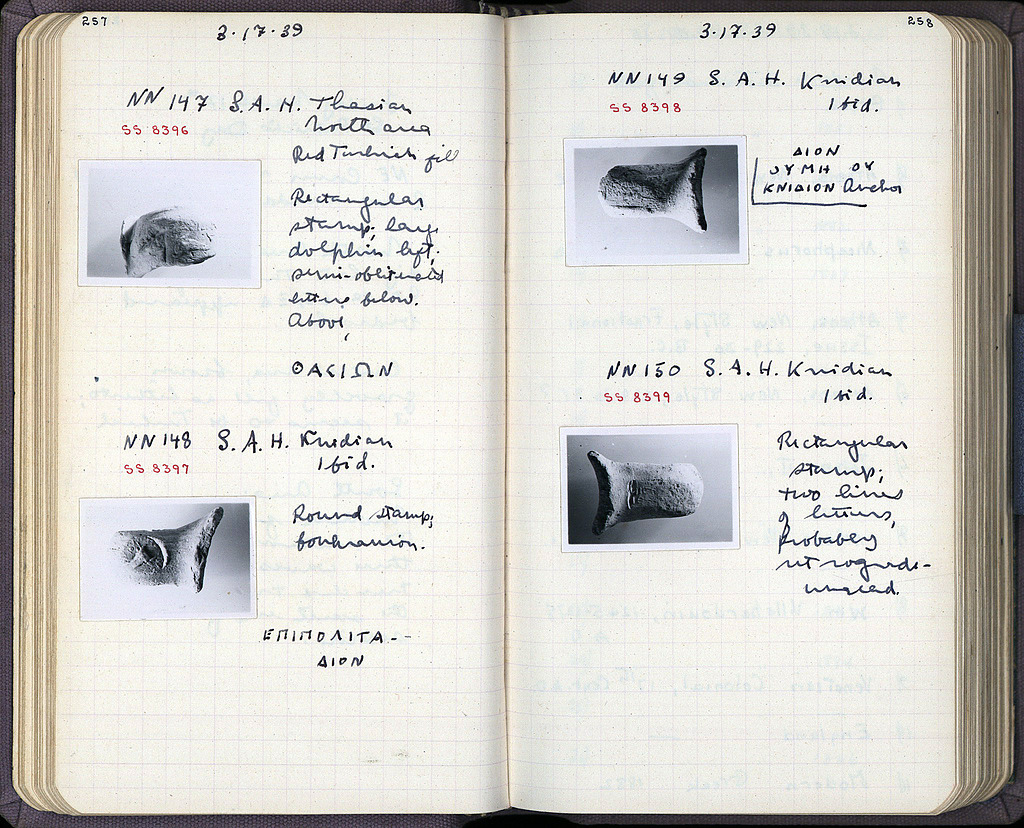 257
3·17·39
NN 147 S. A. H. Thasian
SS 8396
North area
Red Turkish fill
Rectangular
stamp; large
dolphin left;
semi-obliterated
letters below.
Above,
ΘΑϹΙΩΝ
NN 148 S. A. H. Knidian
SS 8397
Ibid.
Round stamp;
boukranion.
ΕΠΙΠΟΛΙΤΑ--
ΔΙΟΝ
258
3·17·39
NN 149 S. A. H. Knidian
SS 8398
Ibid.
ΔΙΟΝ
ΥΜΗ ΟΥ
ΚΝΙΔΙΟΝ Anchor
NN 150 S. A. H. Knidian
SS 8399
Ibid.
Rectangular
stamp;
two lines
of letters,
probably
retrograde-
unread.